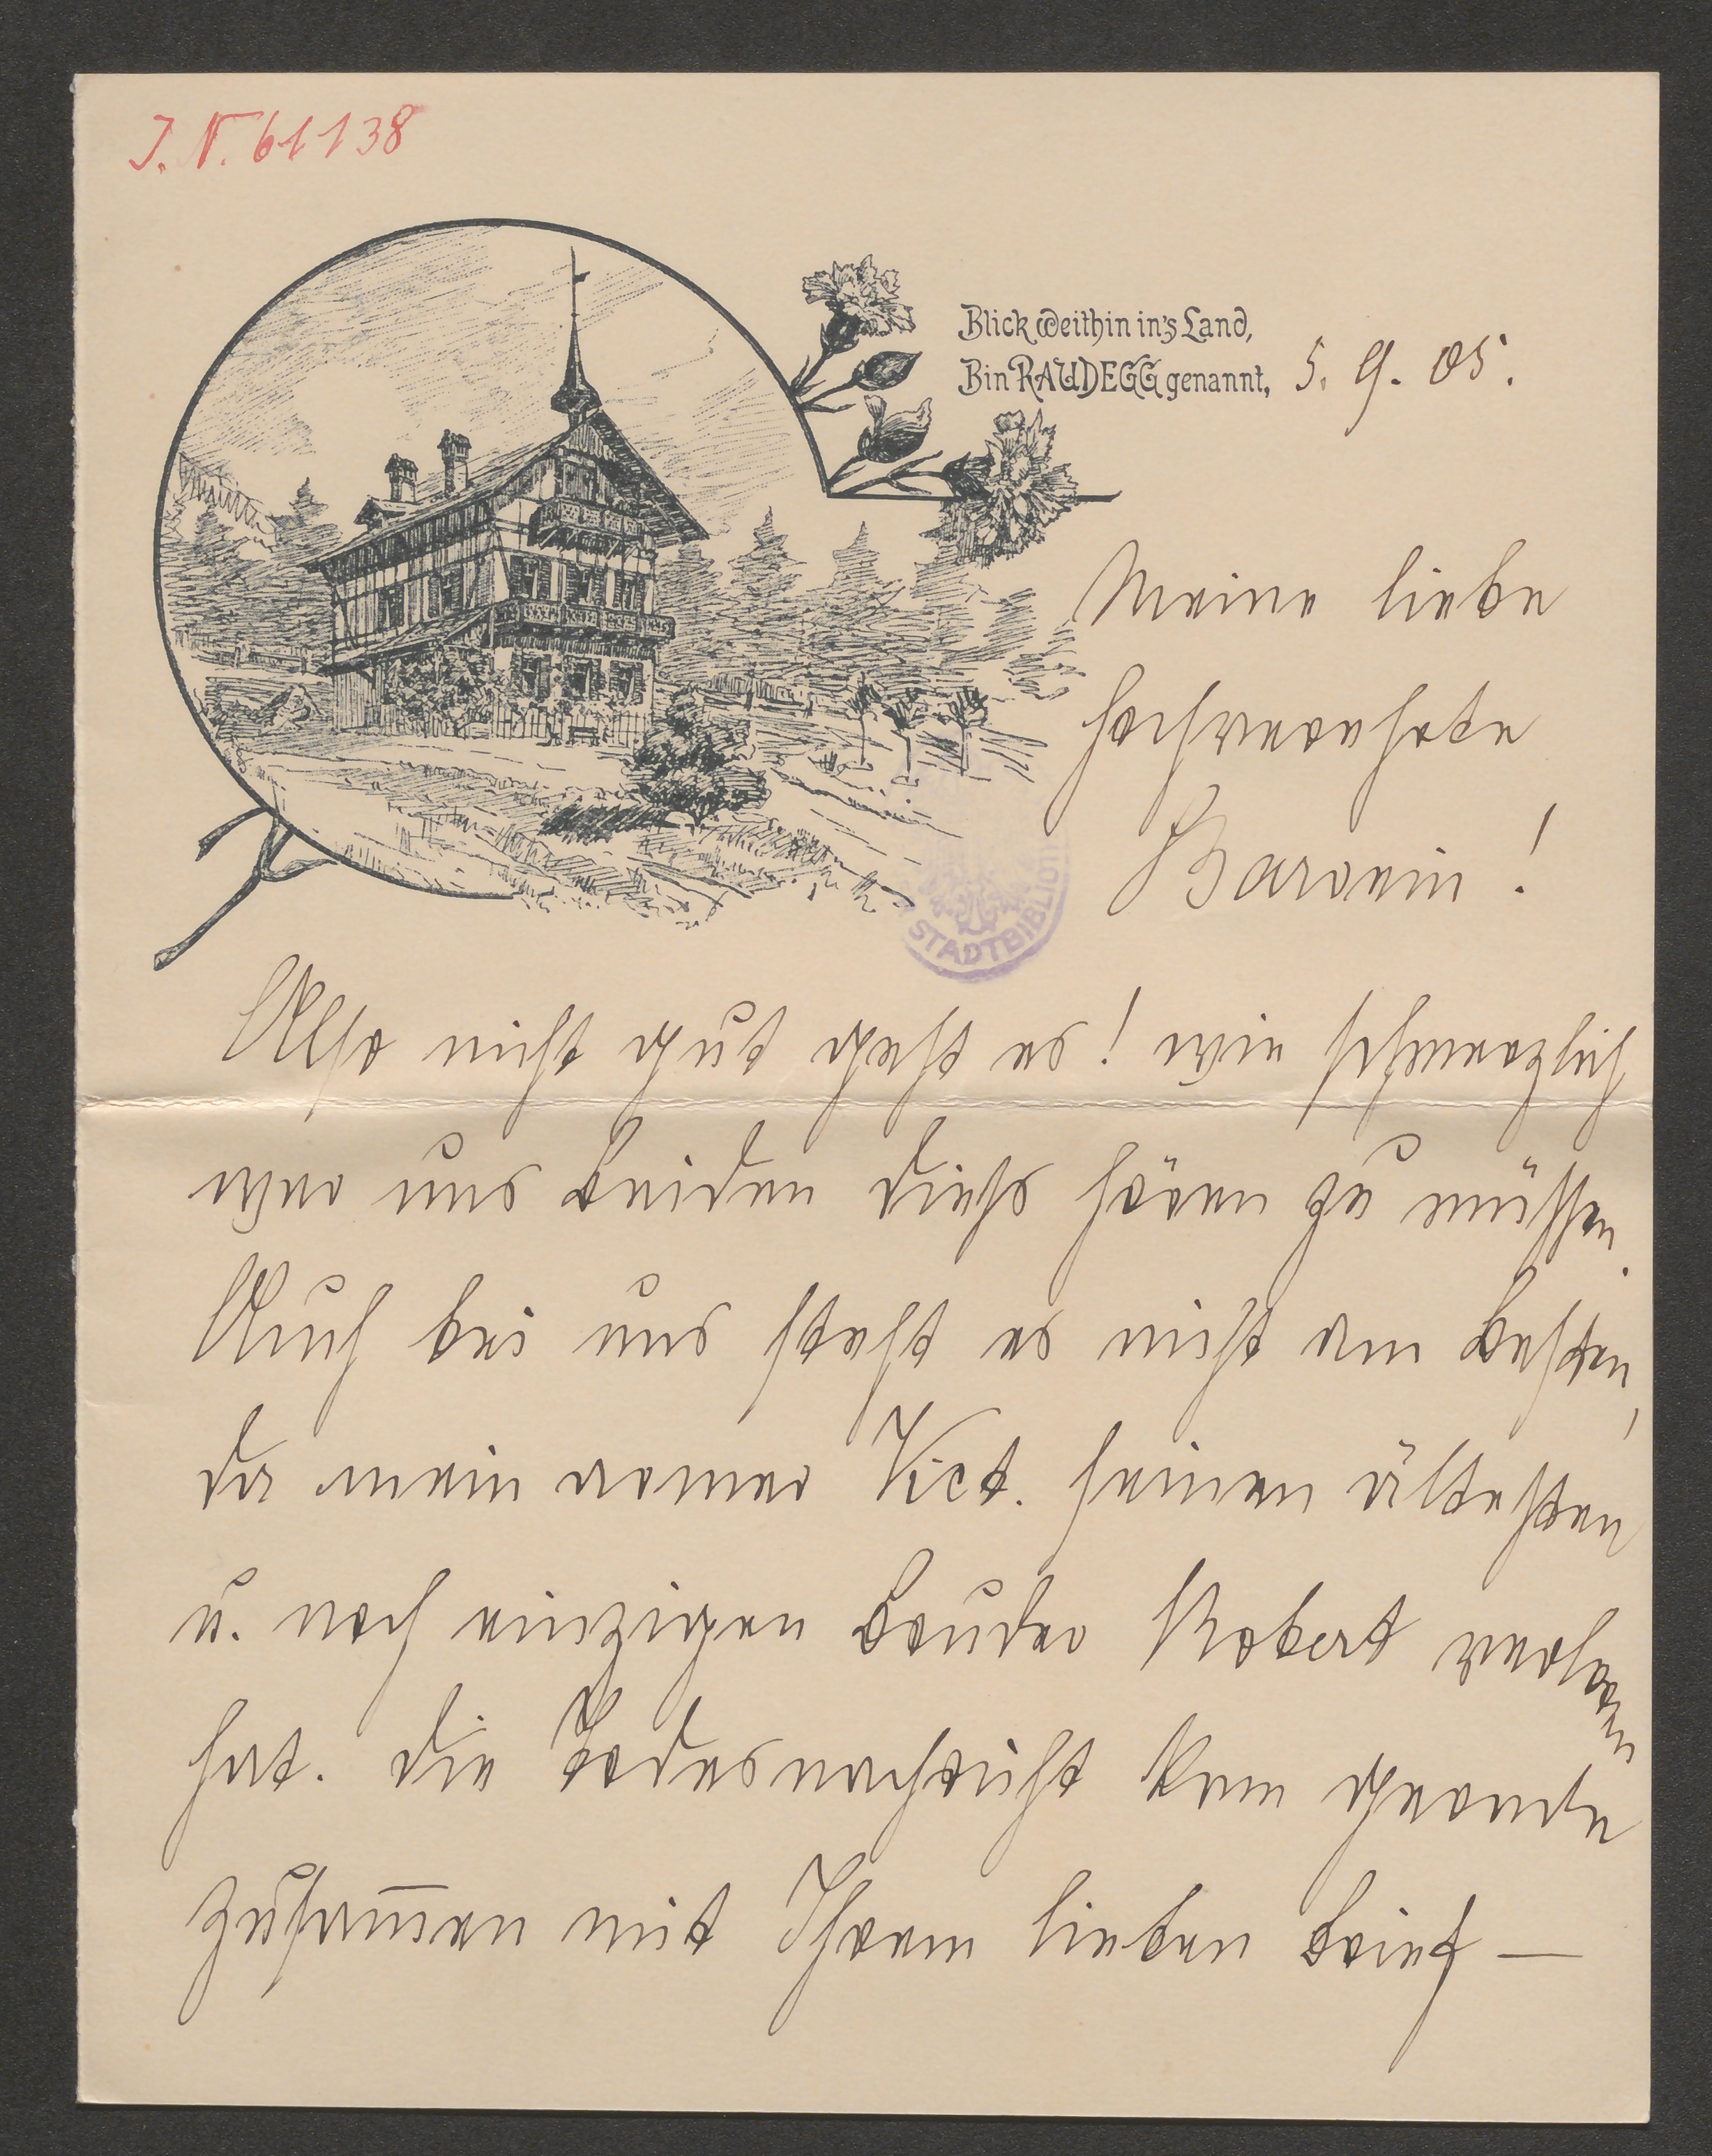 J. N. 61138
Blick weithin in's Land,
Bin RAUDEGG genannt, 5. 9. 05.
Meine liebe
hochverehrte
Baronin!
STADTBIBLIOT
Also nicht gut geht es! wie schmerzlich
war uns beiden dieß hören zu müssen.
Auch bei uns steht es nicht am besten,
da mein armer Vict. seinen ältesten
u. noch einzigen Bruder Robert verloren
hat. Die Todesnachricht kam gerade
zusam̄en mit Ihrem lieben Brief —